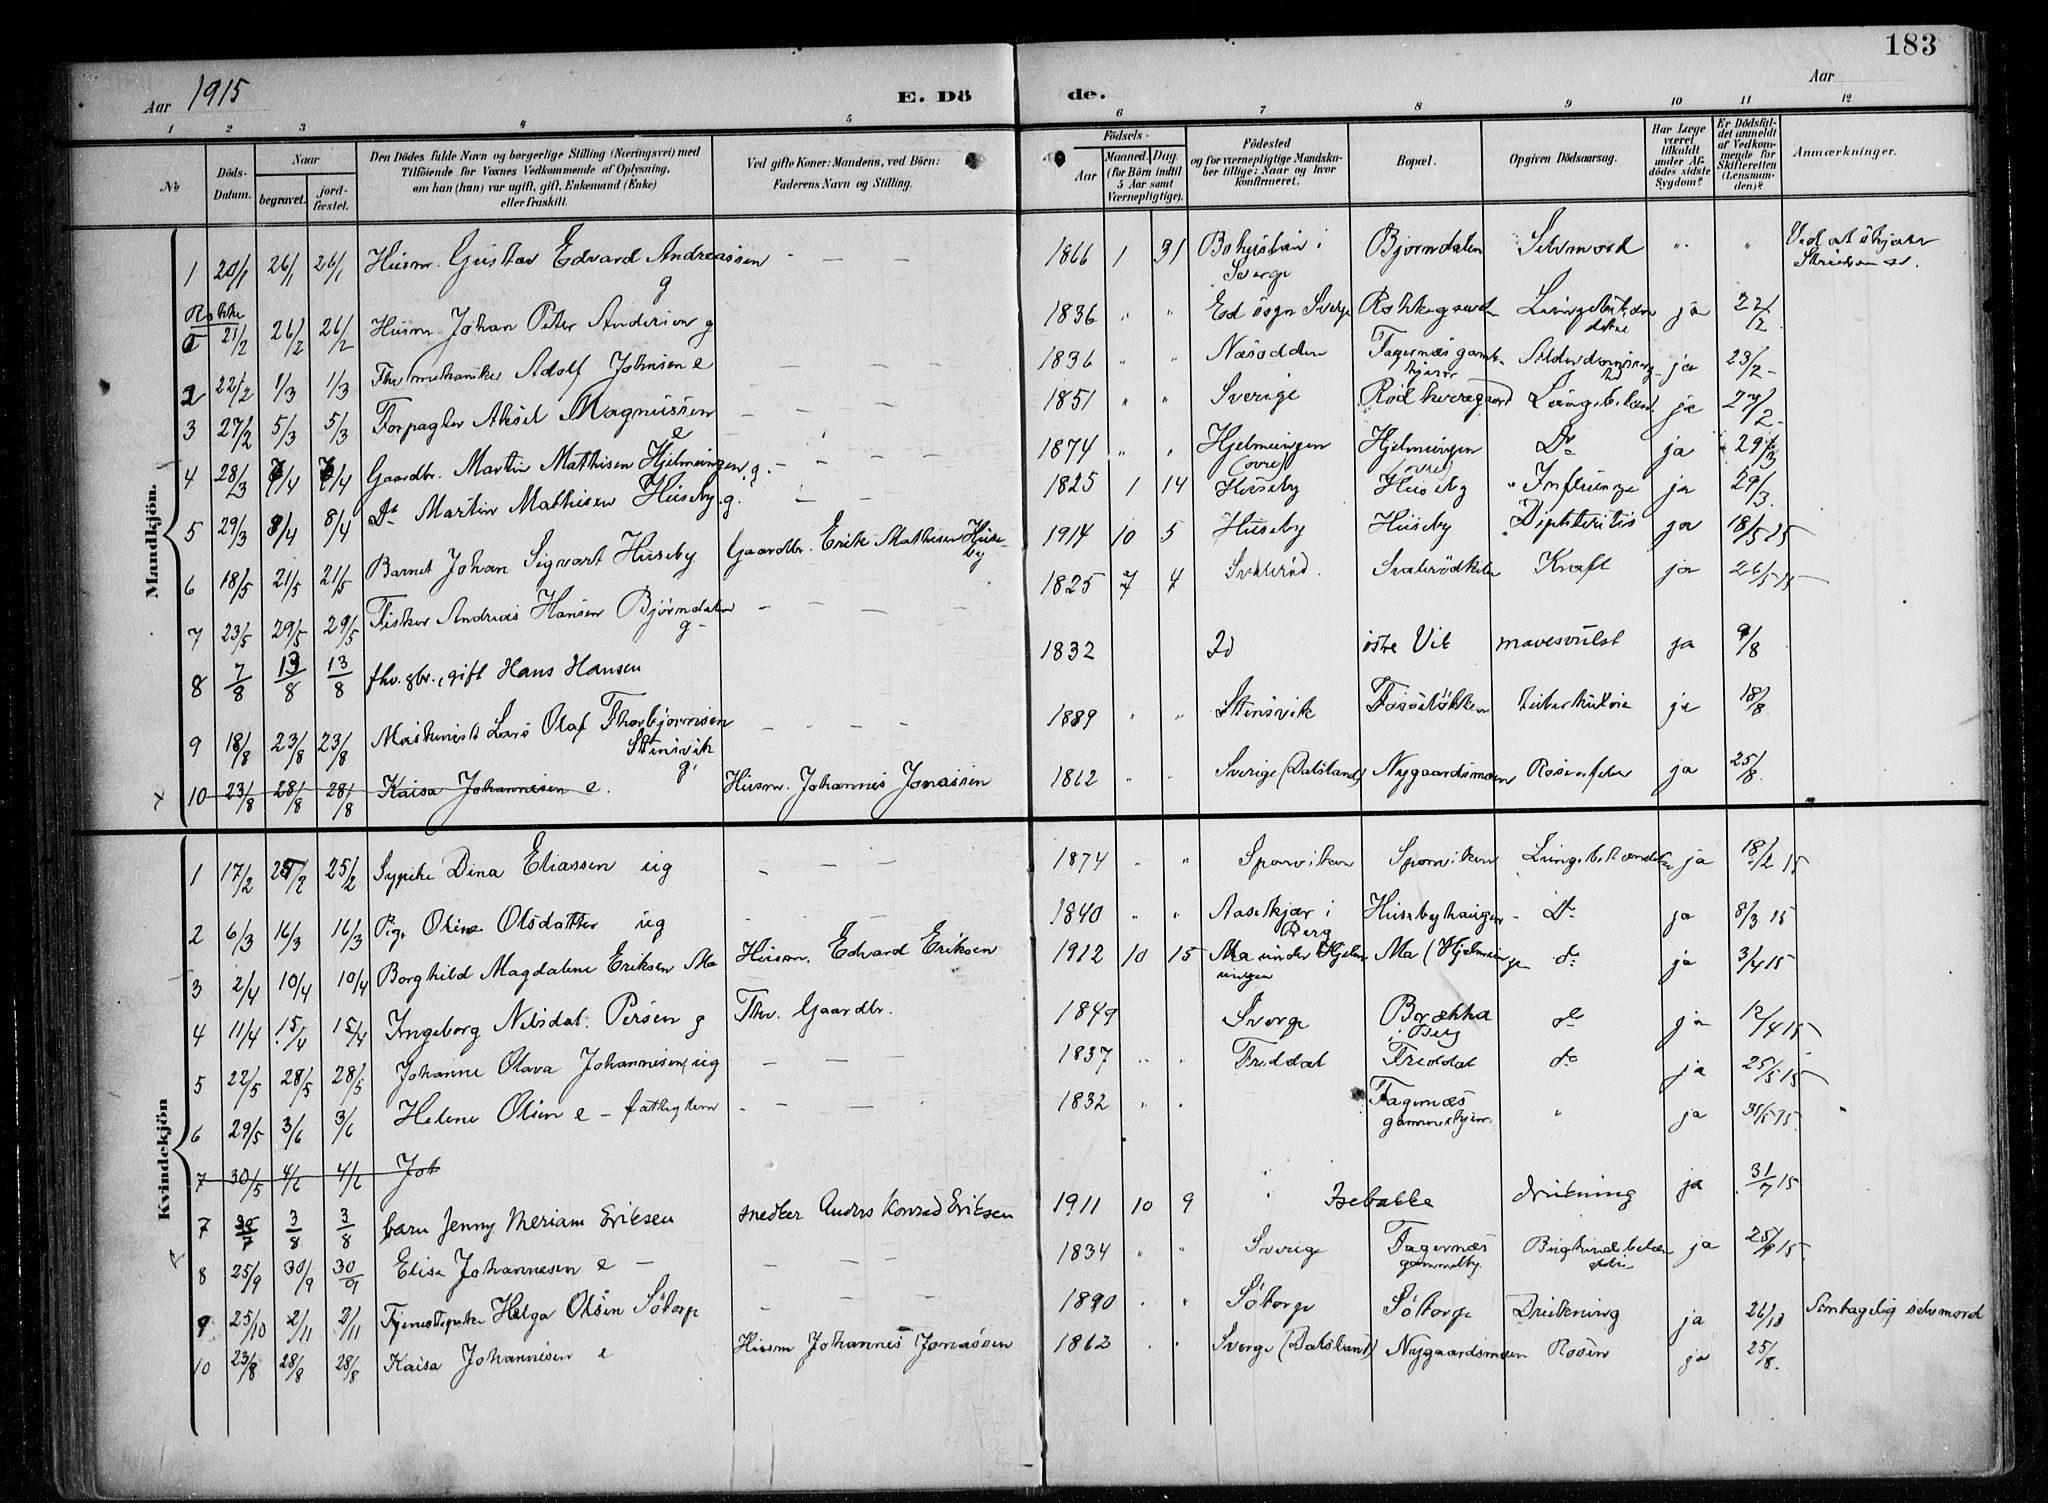 183
Aar 1915
E. Dö de.
Aar
1 2 3 4 5 6 7 8 9 10 11 12
No
Döds-Datum.
Naar
begravet.
jord-fæstet.
Den Dödes fulde Navn og borgerlige Stilling (Næringsvei) med
Tilföiende for Voxnes Vedkommende af Oplysning,
om han (hun) var ugift, gift, Enkemand (Enke)
eller fraskilt.
Ved gifte Koner: Mandens, ved Börn:
Faderens Navn og Stilling.
Födsels-
Aar
Maaned. Dag.
(for Börn indtil
5 Aar samt
Værnepligtige).
Födested
og for værnepligtige Mandska-
ber tillige: Naar og hvor
konfirmeret.
Bopæl.
Opgiven Dödsaarsag.
Har Læge
været
tilkaldt
under Af-
dödes sidste
Sygdom?
Er Dödsfal-
det anmeldt
af Vedkom-
mende for
Skifteretten
(Lensman-
den)?
Anmærkninger.
Mandkjön.
1 20/1 26/1 26/1 Husm. Gustav Edvard Andreassen g - - - 1866 1 31 Bohuslän i Sverge Bjørndalen Selvmord " " Ved at skjære
Rokke
21/2 26/2 26/2 Husm. Johan Peter Andersen g 1836 " " Ed sogn Sverge Rokkegaarden ja 22/2
2 22/2 1/3 1/3 Fhv mekaniker Adolf Johnsen e - - - 1836 " " Næsodden Fagernæs ja 23/2
3 27/2 5/3 5/3 Forpagter Aksel Magnussen e - - - 1851 " " Sverige ja 27/2
4 28/3 7/4 7/4 Gaardbr. Martin Mathisen Hjelmungen g. - - - 1874 " " Hjelmungen (øvre) Hjelmungen (øvre) Do ja 29/3
5 29/3 8/4 8/4 Do Martin Mathisen Huseby g. - - 1825 1 14 Huseby Huseby Influenze ja 29/3
6 18/5 21/5 21/5 Barnet Johan Sigvart Huseby Gaardbr. Erik Mathisen Huseby 1914 10 5 Huseby Huseby Diphteritis ja 18/5 15
7 23/5 29/5 29/5 Fisker Andreas Hansen Bjørndalen g - - - - 1825 7 4 Svalerød. Svalerødkilen Kræft ja 26/5 15
8 7/8 13/8 13/8 fhv. gbr., gift Hans Hansen 1832 Id østre Vit mavesvulst ja 9/8
9 18/8 23/8 23/8 Maskinist Lars Olaf Thorbjørnsen Stensvik g. - - - - 1889 " " Stensvik Tuberkulose ja 18/8
10 23/8 28/8 28/8 Kaisa Johannesen e. Husm. Johannes Jonassen 1862 " " Sverige (Dalsland) Nygaardsmoen Rosenfeber ja 25/8.
Kvindekjön
1 17/2 25/2 25/2 Sypike Dina Eliassen ug - - - 1874 " " Sponviken Sponviken Lungebetændelse ja 18/2 15
2 6/3 16/3 16/3 Pige Oline Olsdatter ug - - - - 1840 " " Aasekjær i Berg Husebyhaugen Do ja 8/3 15
3 2/4 10/4 10/4 Borghild Magdalene Eriksen Ma Husm. Edvard Eriksen 1912 10 15 Ma under Hjelmungen Ma (Hjelmungen do ja 3/4 15
4 11/4 15/4 15/4 Ingeborg Nilsdat. Persen g Fhv. Gaardbr. 1849 Sverge Brække i Berg do ja 12/4 15
5 22/5 28/5 28/5 Johanne Olava Johannesen, ug - - - 1837 " " Freddal Freddal do ja 25/5 15
6 29/5 3/6 3/6 Helene Olsen e - fattiglem - - - 1832 " " Fagernæs gammelhjem. " ja 31/5 15.
7 30/5 4/6 4/6 Joh
7 30/7 3/8 3/8 barn Jenny Meriam Eriksen snedker Anders Konrad Eriksen 1911 10 9 " Isebakke drukning ja 31/7 15
8 25/9 30/9 30/9 Elise Johannesen e - - - - 1834 " " Sverige Fagernæs ja 25/9 15.
9 25/10 2/11 2/11 Tjenestepike Helga Olsen Søtorp - - - 1890 " " Søtorp Søtorp Drukning ja 26/10 Antagelig selvmord
10 23/8 28/8 28/8 Kaisa Johannesen e Husm Johannes Jonassen 1862 . . Sverge (Dalsland) Nygaardsmoen Rosen ja 25/8.